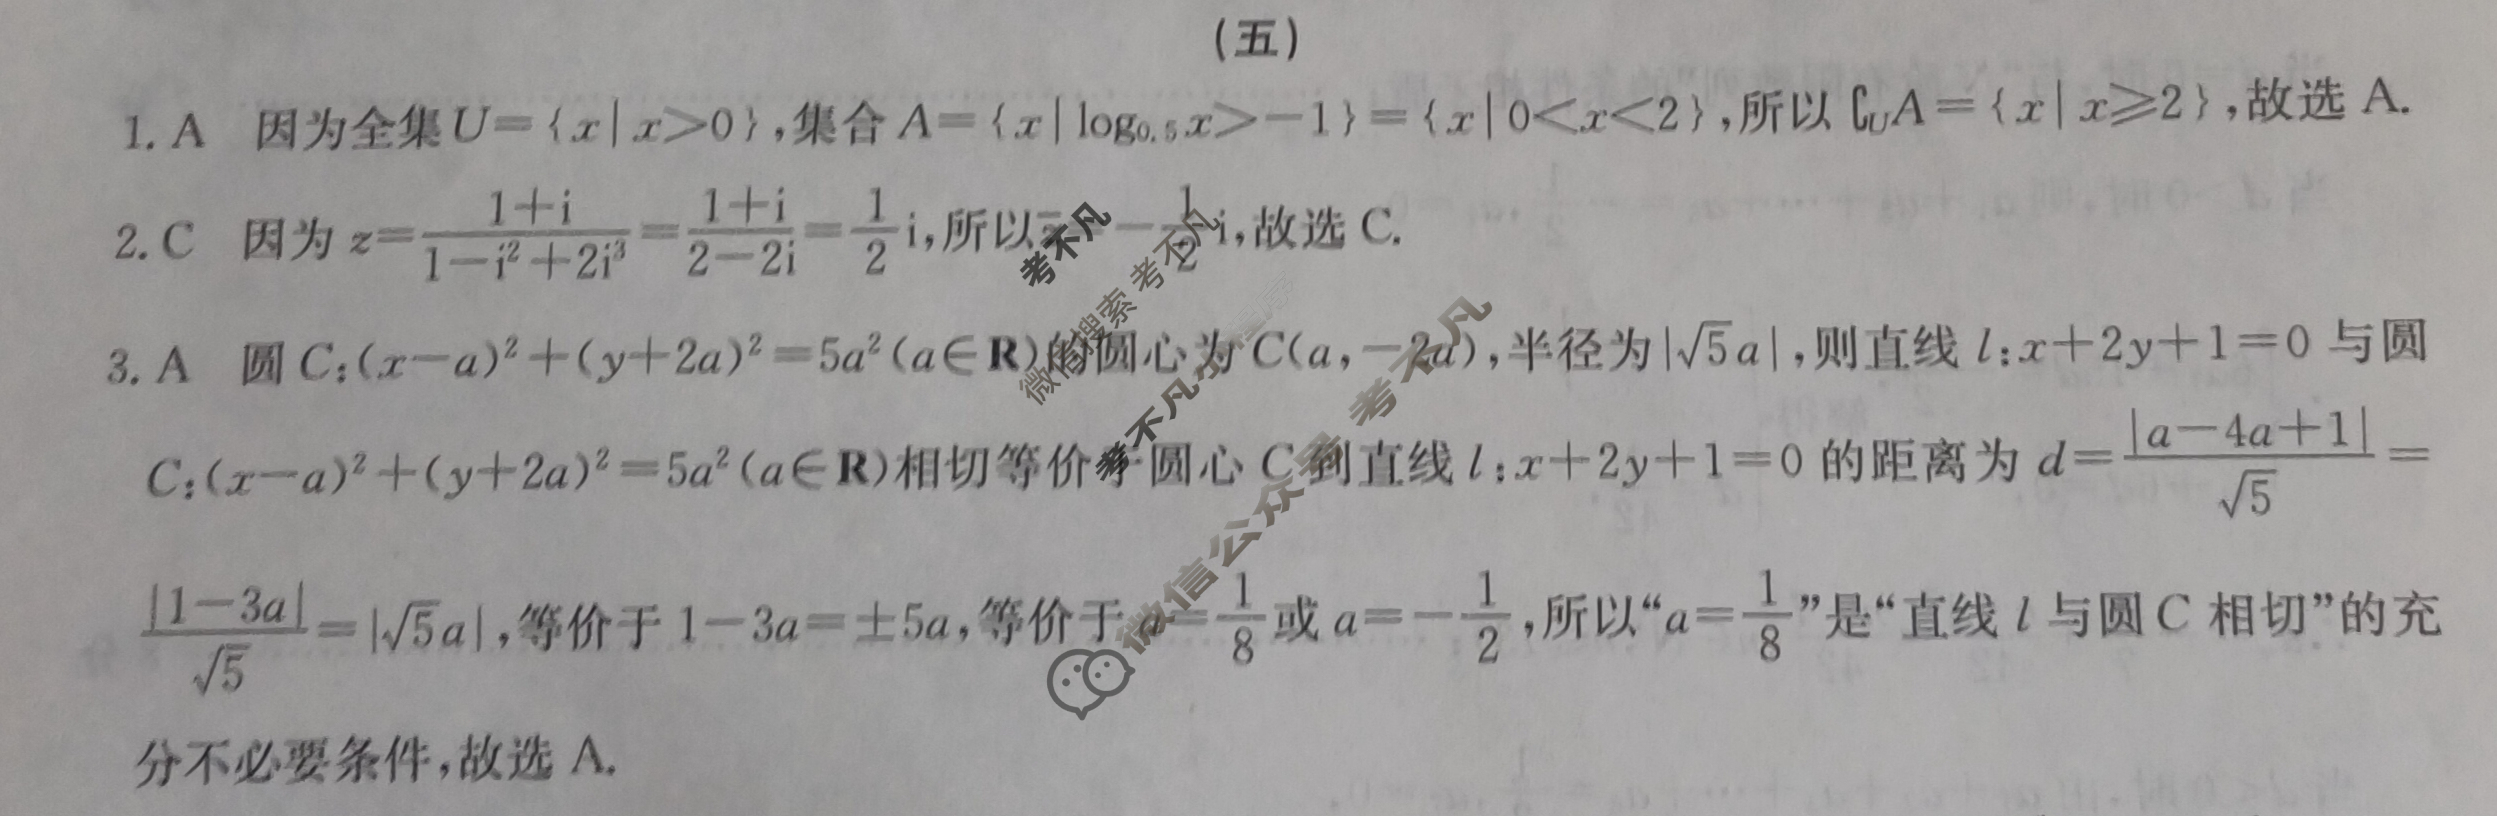 (五)
1. A 因为全集U={x|x>0},集合A={x|log₀.₅x>-1}={x|0<x<2},所以∁ᵤA={x|x≥2},故选 A.
2. C 因为 z=(1+i)/(1-i²+2i³)=(1+i)/(2-2i)=1/2 i,所以z̄=-1/2 i,故选 C.
3. A 圆C:(x-a)²+(y+2a)²=5a²(a∈R)的圆心为C(a,-2a),半径为|√5a|,则直线 l:x+2y+1=0 与圆
C:(x-a)²+(y+2a)²=5a²(a∈R)相切等价于圆心C到直线 l:x+2y+1=0 的距离为 d=|a-4a+1|/√5=
|1-3a|/√5=|√5a|,等价于 1-3a=±5a,等价于 a=1/8或a=-1/2,所以“a=1/8”是“直线 l 与圆C 相切”的充
分不必要条件,故选 A.
考不凡
微信搜索 考不凡
微信公众号 考不凡